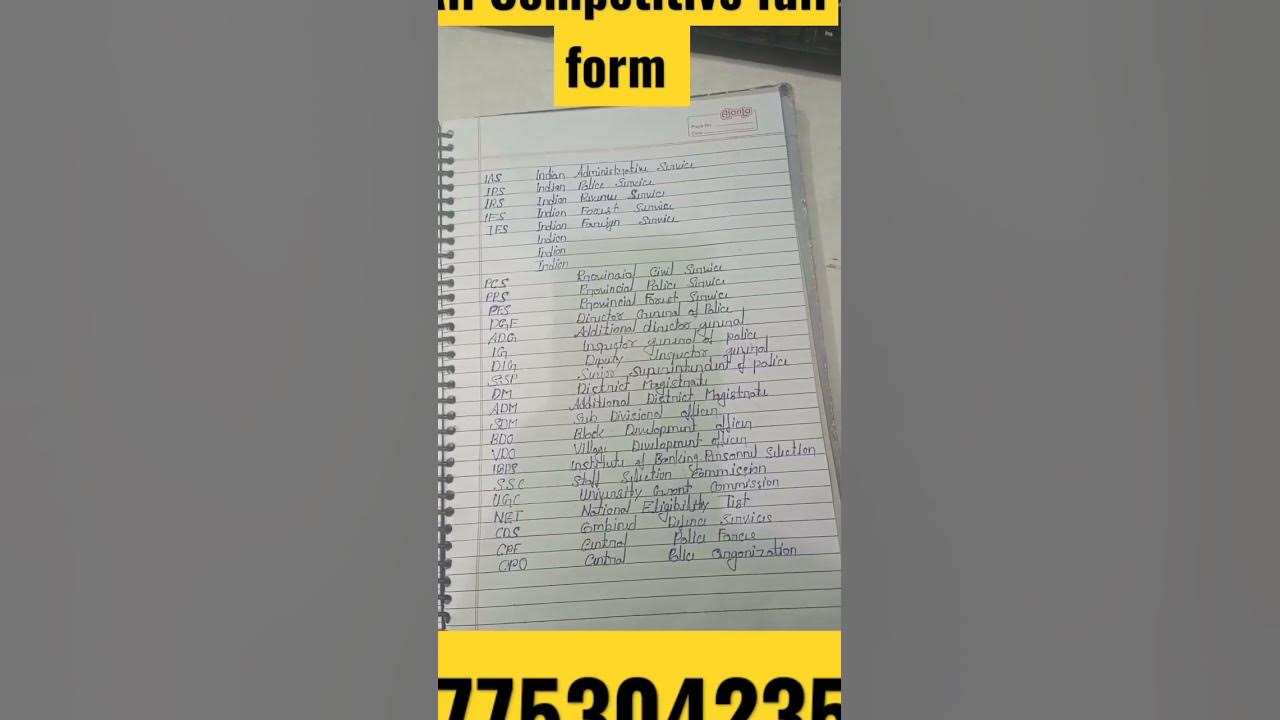 All Competitive full
form
Ajanta
Page No.
Date
IAS Indian Administrative Service
IPS Indian Police Service
IRS Indian Revenue Service
IFS Indian Forest Service
IFS Indian Foreign Service
Indian
Indian
Indian
PCS Provincial Civil Service
PPS Provincial Police Service
PFS Provincial Forest Service
DGP Director General of Police
ADG Additional director general
IG Inspector general of police
DIG Diputy Inspector general
SSP Senior Superintendent of police
DM District Magistrate
ADM Additional District Magistrate
SDM Sub Divisional officer
BDO Block Development officer
VDO Village Development officer
IBPS Institute of Banking Personnel Selection
S.S.C Staff Selection Commission
UGC University Grant Commission
NET National Eligibility Test
CDS Combined Defence Services
CPF Central Police Forces
CPO Central Police Organization
775304235